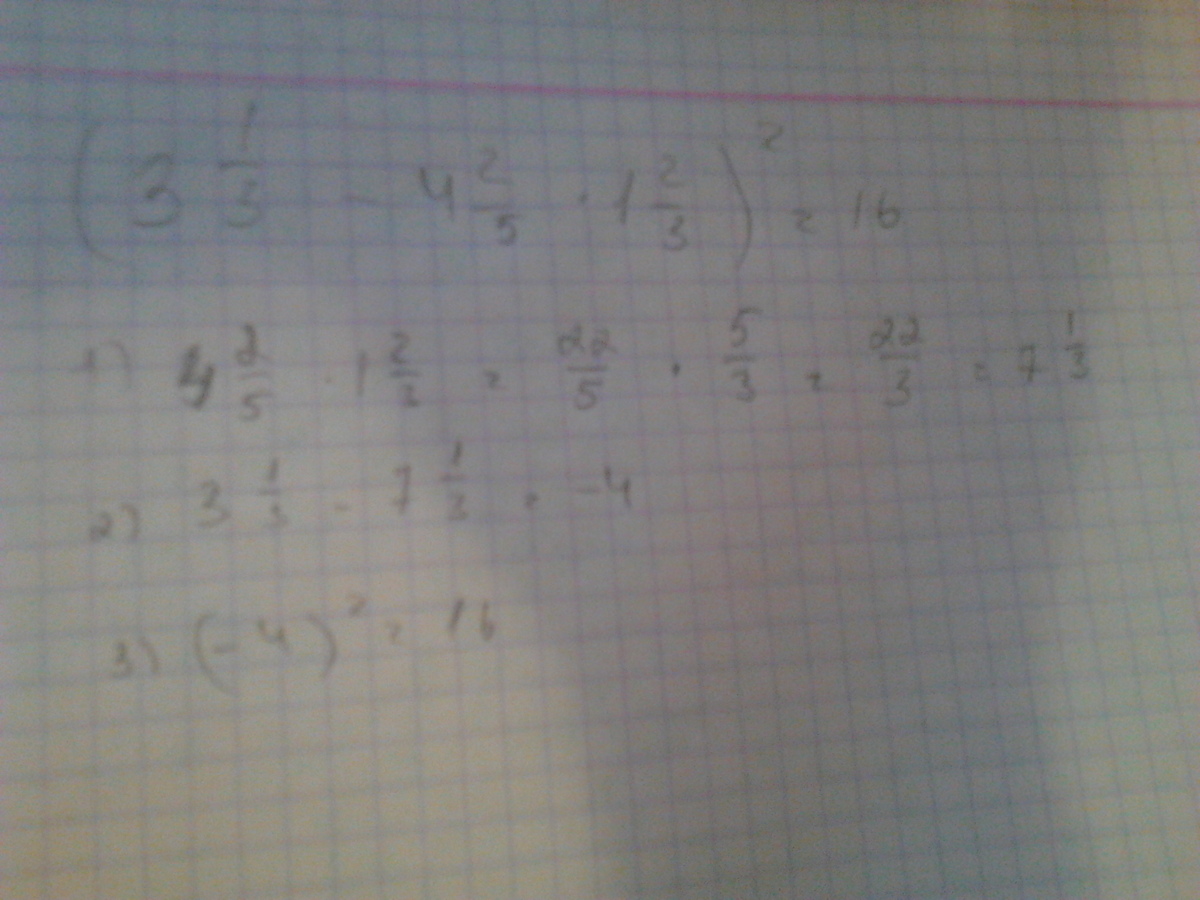 (3 1/3 - 4 2/5 · 1 2/3)² = 16
1) 4 2/5 · 1 2/3 = 22/5 · 5/3 = 22/3 = 7 1/3
2) 3 1/3 - 7 1/3 = -4
3) (-4)² = 16